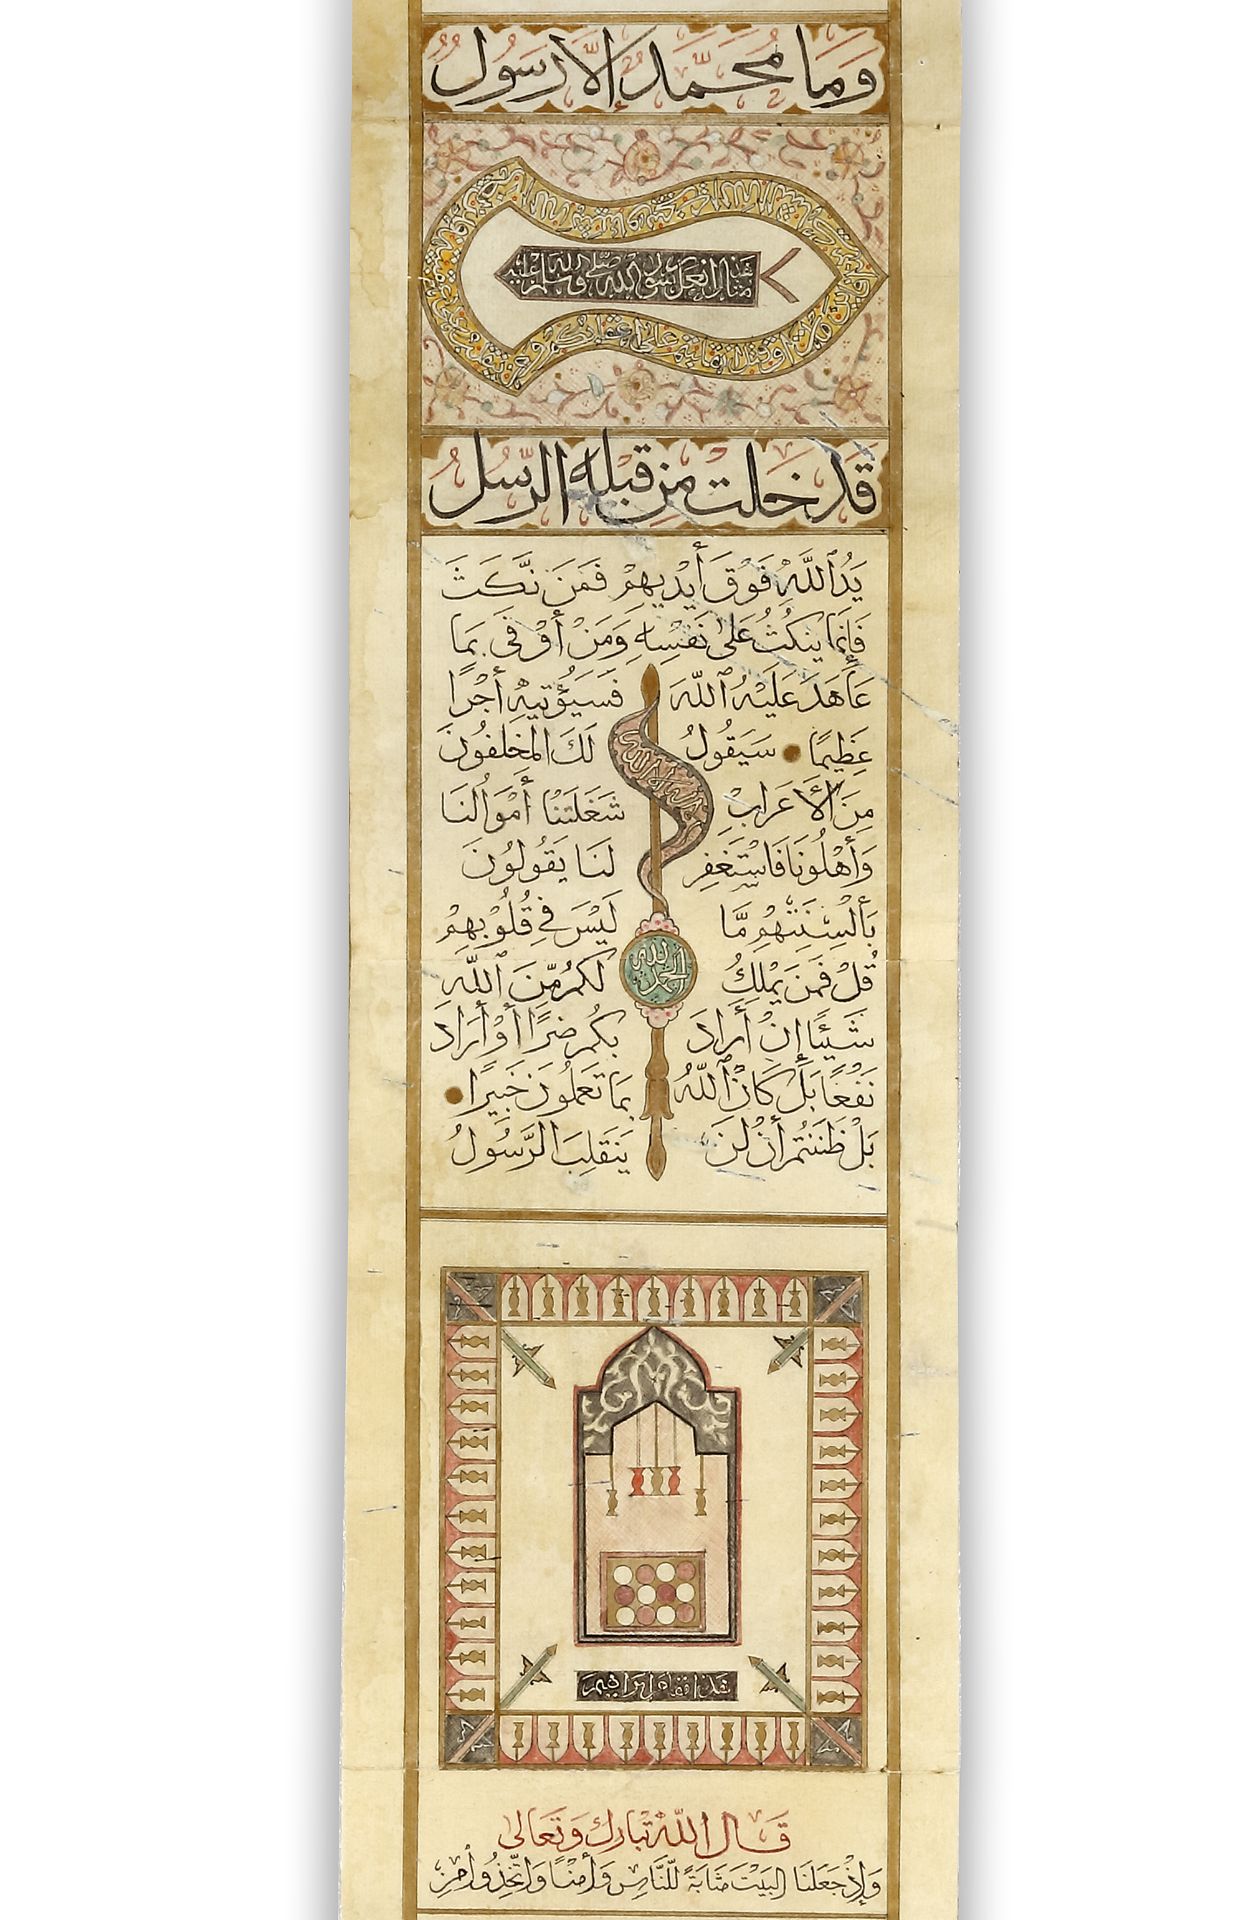 وَمَا مُحَمَّدٌ إِلَّا رَسُولٌ
هذا مثال نعل رسول الله صلى الله عليه وسلم
قَدْ خَلَتْ مِنْ قَبْلِهِ الرُّسُلُ
يَدُ ٱللَّهِ فَوْقَ أَيْدِيهِمْ فَمَنْ نَّكَثَ
فَإِنَّمَا يَنكُثُ عَلَىٰ نَفْسِهِ وَمَنْ أَوْفَىٰ بِمَا
عَاهَدَ عَلَيْهُ ٱللَّهَ فَسَيُؤْتِيهِ أَجْرًا
عَظِيمًا سَيَقُولُ لَكَ الْمُخَلَّفُونَ
مِنَ الْأَعْرَابِ شَغَلَتْنَا أَمْوَالُنَا
وَأَهْلُونَا فَاسْتَغْفِرْ لَنَا يَقُولُونَ
بِأَلْسِنَتِهِم مَّا لَيْسَ فِي قُلُوبِهِمْ
قُلْ فَمَن يَمْلِكُ لَكُم مِّنَ ٱللَّهِ
شَيْئًا إِنْ أَرَادَ بِكُمْ ضَرًّا أَوْ أَرَادَ
نَفْعًا بَلْ كَانَ ٱللَّهُ بِمَا تَعْمَلُونَ خَبِيرًا
بَلْ ظَنَنتُمْ أَنْ لَنْ يَنقَلِبَ الرَّسُولُ
لا إله إلا الله
الحمد لله
هذا مقام إبراهيم
قَالَ اللَّهُ تَبَارَكَ وَتَعَالَى
وَإِذْ جَعَلْنَا الْبَيْتَ مَثَابَةً لِّلنَّاسِ وَأَمْنًا وَاتَّخِذُوا مِنْ